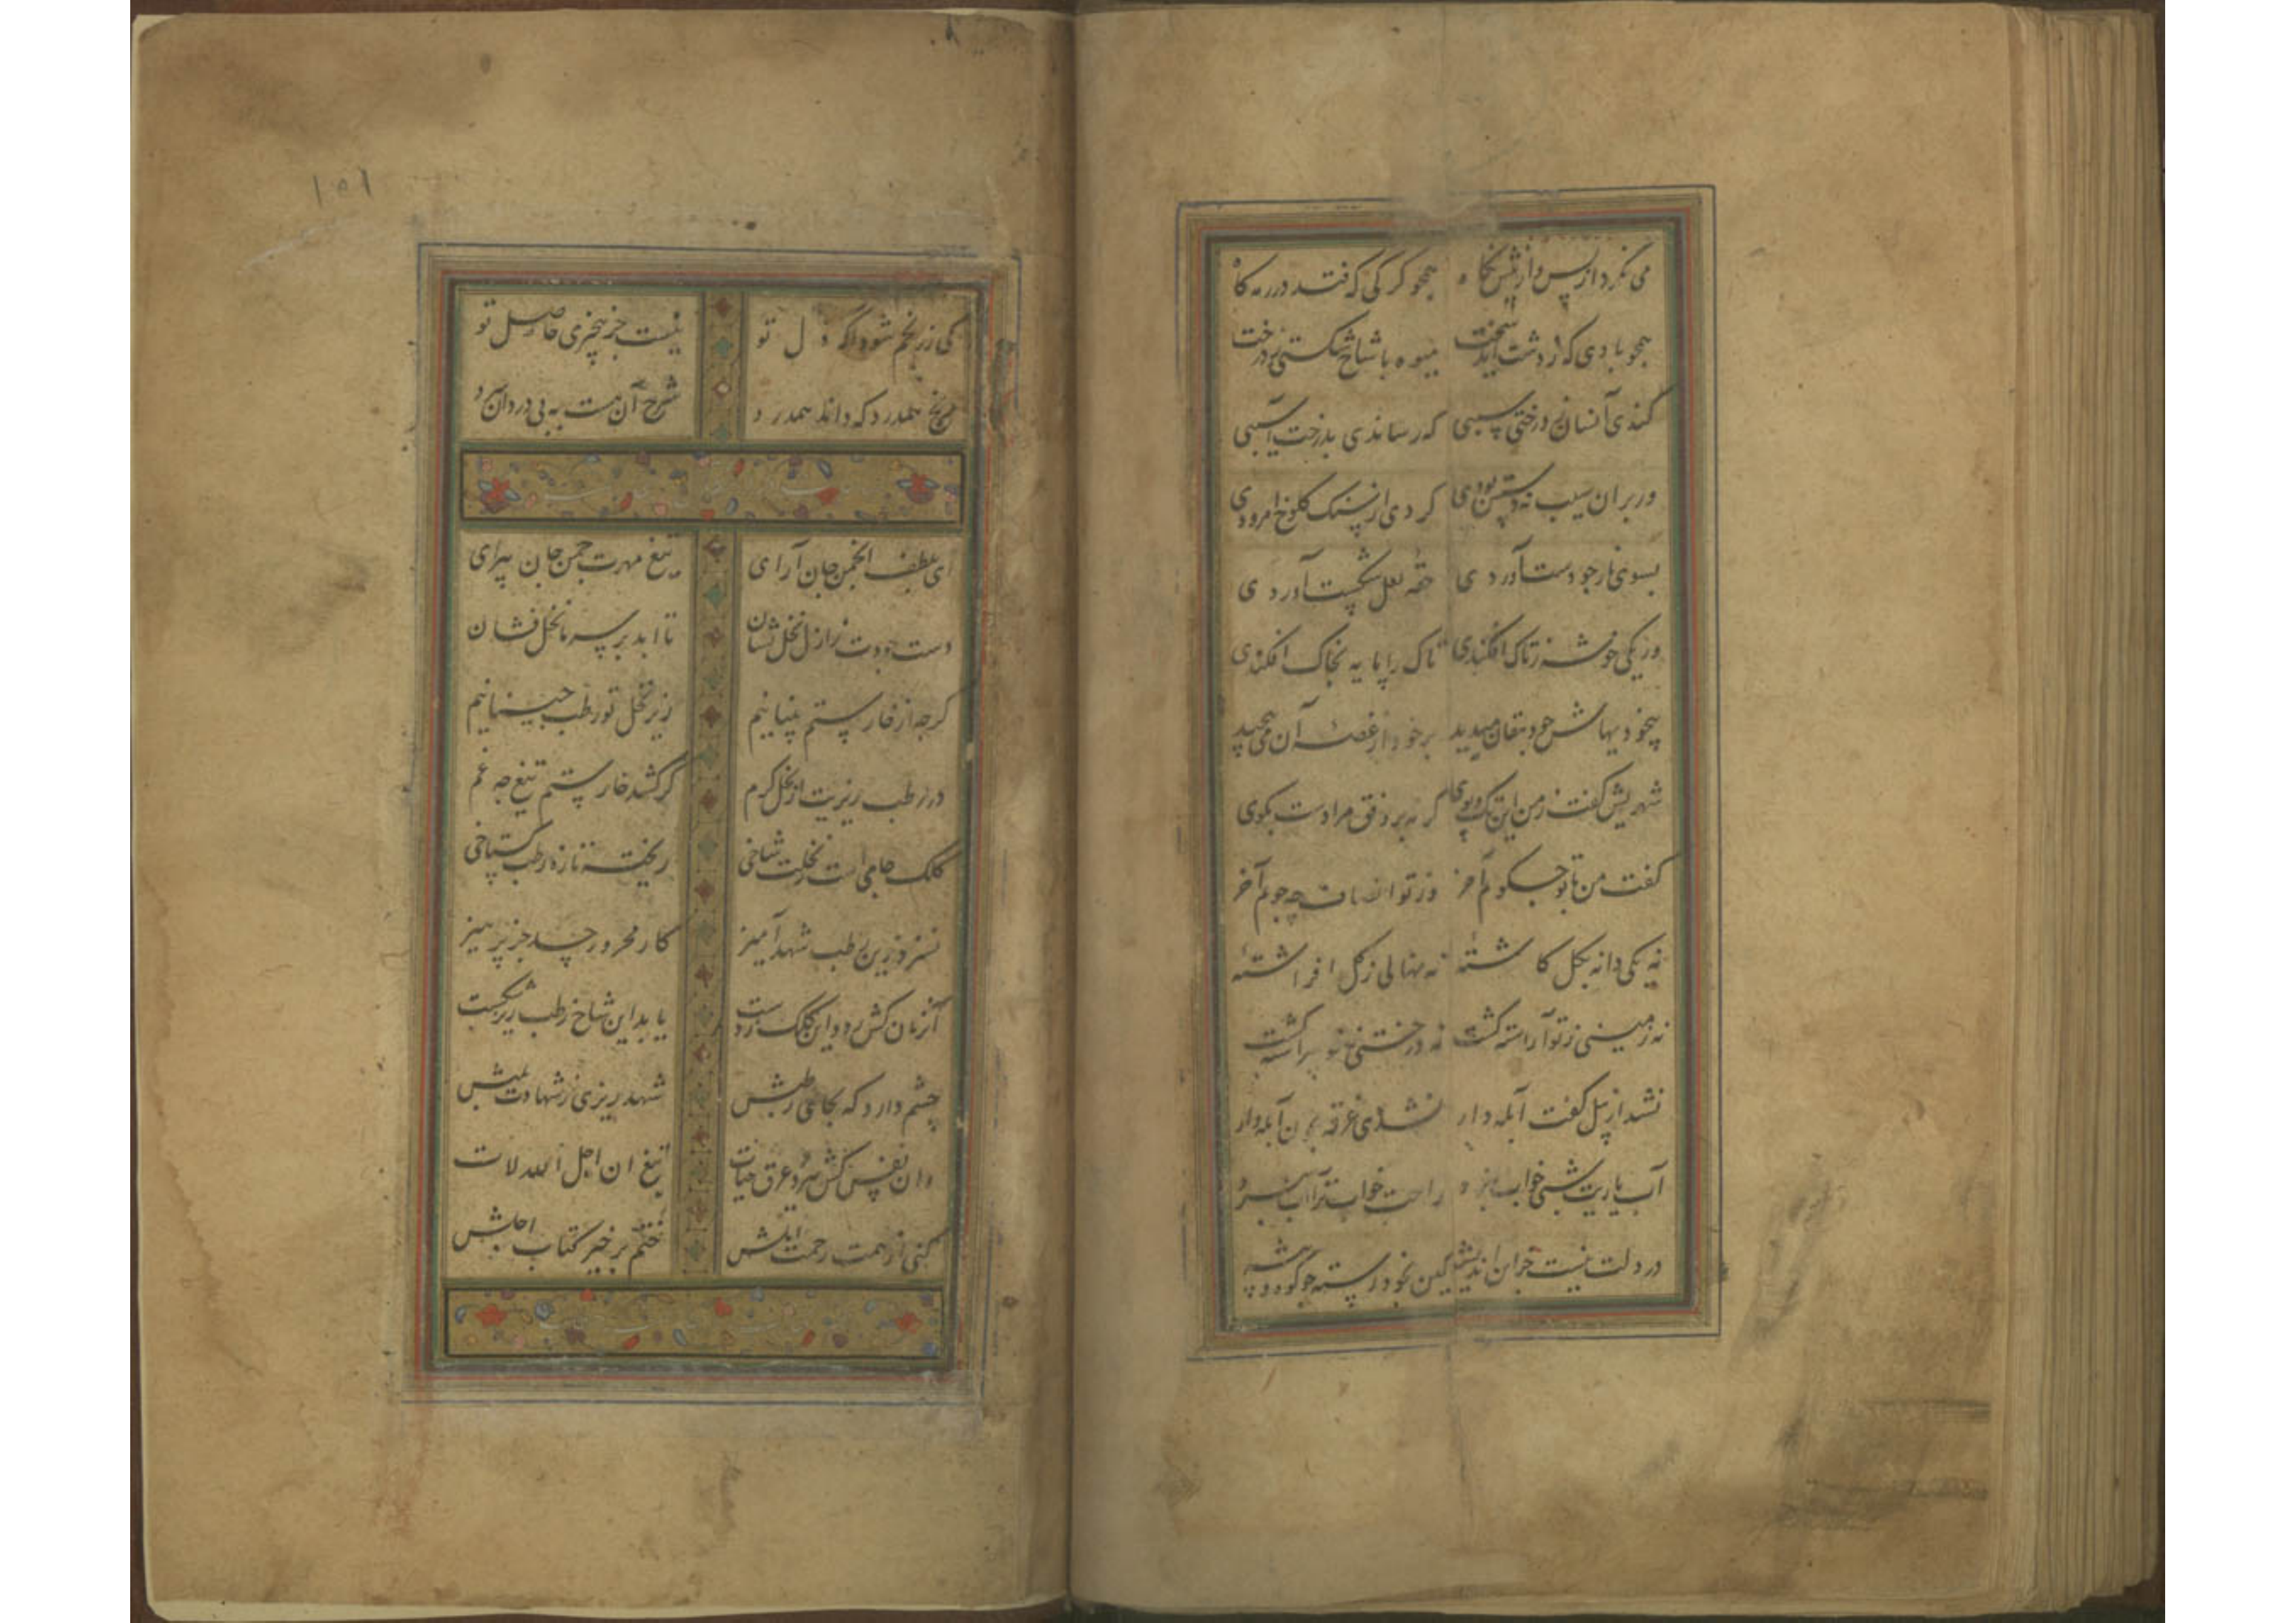 می نکرد از پس و از پیش نکاه همچو کرکی که فتد در رمه کاه
همچو بادی که ز دشت آید سخت میوه با شاخ شکستی ز درخت
کندی آنسان ز درختی سیبی که رساندی بدرخت آسیبی
ور بران سیب نه دستش بودی کردی از سنک کلوخ امرودی
بسوی نار چو دست آوردی حقه لعل شکست آوردی
ور یکی خوشه ز تاک افکندی تاک را پایه بخاک افکندی
بیخودیهاش چو دهقان میدید بر خود از غصه آن می پیچید
شهریش کفت ز من این تک و پوی کر نه بر وفق مرادست بکوی
کفت من با تو چه کویم آخر وز تو انصاف چه جویم آخر
نه یکی دانه بکل کاشته نه نهالی ز کل افراشته
نه زمینی ز تو آراسته کشت نه درختی ز تو پیراسته کشت
نشد از بیل کفت آبله دار نشدی غرقه بخون آبله وار
آب یاریت شبی خواب نبرد راحت خواب ترا آب نبرد
در دلت نیست جز این اندیشه کین بخود رسته چو کوه و بیشه
۱۵۱
کی ز رنجم شود آکه دل تو نیست جز بیخبری حاصل تو
رنج همدرد که داند همدرد شرح آن هست به بی دردان سرد
ای بلطف انجمن جان آرای تیغ مهرت چمن جان پیرای
دست جودت ز ازل نخل نشان تا ابد بر سر ما نخل فشان
کرچه از خار ستم پنبانیم زیر نخل تو رطب چینانیم
در رطب ریزیت از نخل کرم کر کشد خار ستم تیغ چه غم
کلک جامی است ز نخلت شاخی ریخته تازه رطب کستاخی
نسزد زین رطب شهد آمیز کار محرور چه جز پرهیز
آنزمان کش رود این کلک ز دست یابد این شاخ رطب ریز شکست
چشم دارد که بجای رطبش شهد ریزی ز شهادت بلبش
وان نفس کش شمرد غرق حیات تیغ ان اجل الله لات
کنی از همت رحمت املش ختم بر خیر کتاب اجلش